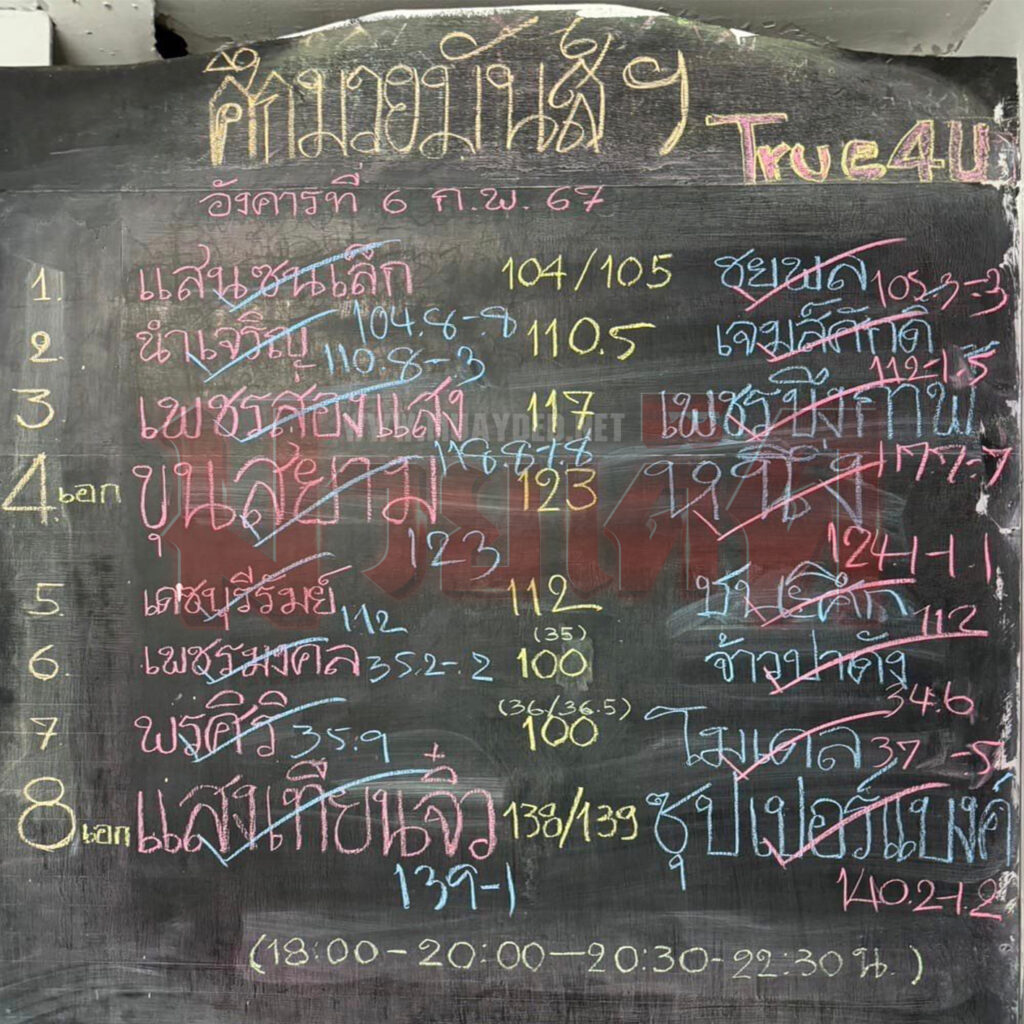 ศึกมวยมันส์ ฯ
True4U
อังคารที่ 6 ก.พ. 67
1. แสนซนเล็ก 104/105 ชยพล 105.3-.3
104.8-.8
2. นำเจริญ 110.5 เจมส์ศักดิ์
110.8-.3 112-1.5
3 เพชรสองแสง 117 เพชรบึงกาฬ
118.8-1.8 117.7-.7
4. เอก ขุนสยาม 123 หนึ่ง
123 124.1-1.1
5. เดชบุรีรัมย์ 112
112 112
(35)
6. เพชรมงคล 35.2-.2 100 จ้าวป่าดัง
34.6
(36/36.5)
7. พรศิริ 35.9 100 โมเดล 37 -.5
8 เอก แสงเทียนจิ๋ว 138/139 ซุปเปอร์แบงค์
139-1 140.2-1.2
(18:00-20:00-20:30-22:30 น.)
WWW.MUAYDED.NET
มวยเด็ด